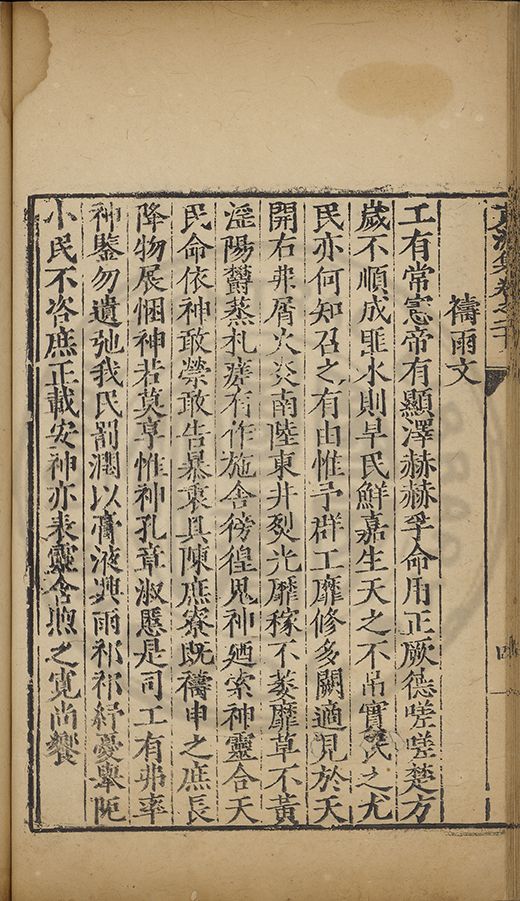 集卷之二十
禱雨文
工有常憲帝有顯澤赫赫孚命用正厥德嗟嗟楚方
歲不順成匪水則旱民鮮嘉生天之不弔實民之尤
民亦何知召之有由惟予群工靡修多闕適見於天
開右弗屑火炎南陸東井烈光靡稼不萎靡草不黃
淫陽欝蒸札瘥有作施舍徬徨鬼神廼索神靈合天
民命依神敢禜敢告暴衷具陳庶寮既禱申之庶長
降物展悃神若莫享惟神孔章淑慝是司工有弗率
神鑒勿遺弛我民罰潤以膏液興雨祁祁紓憂舉阨
小民不咨庶正載安神亦表靈含煦之寛尚饗